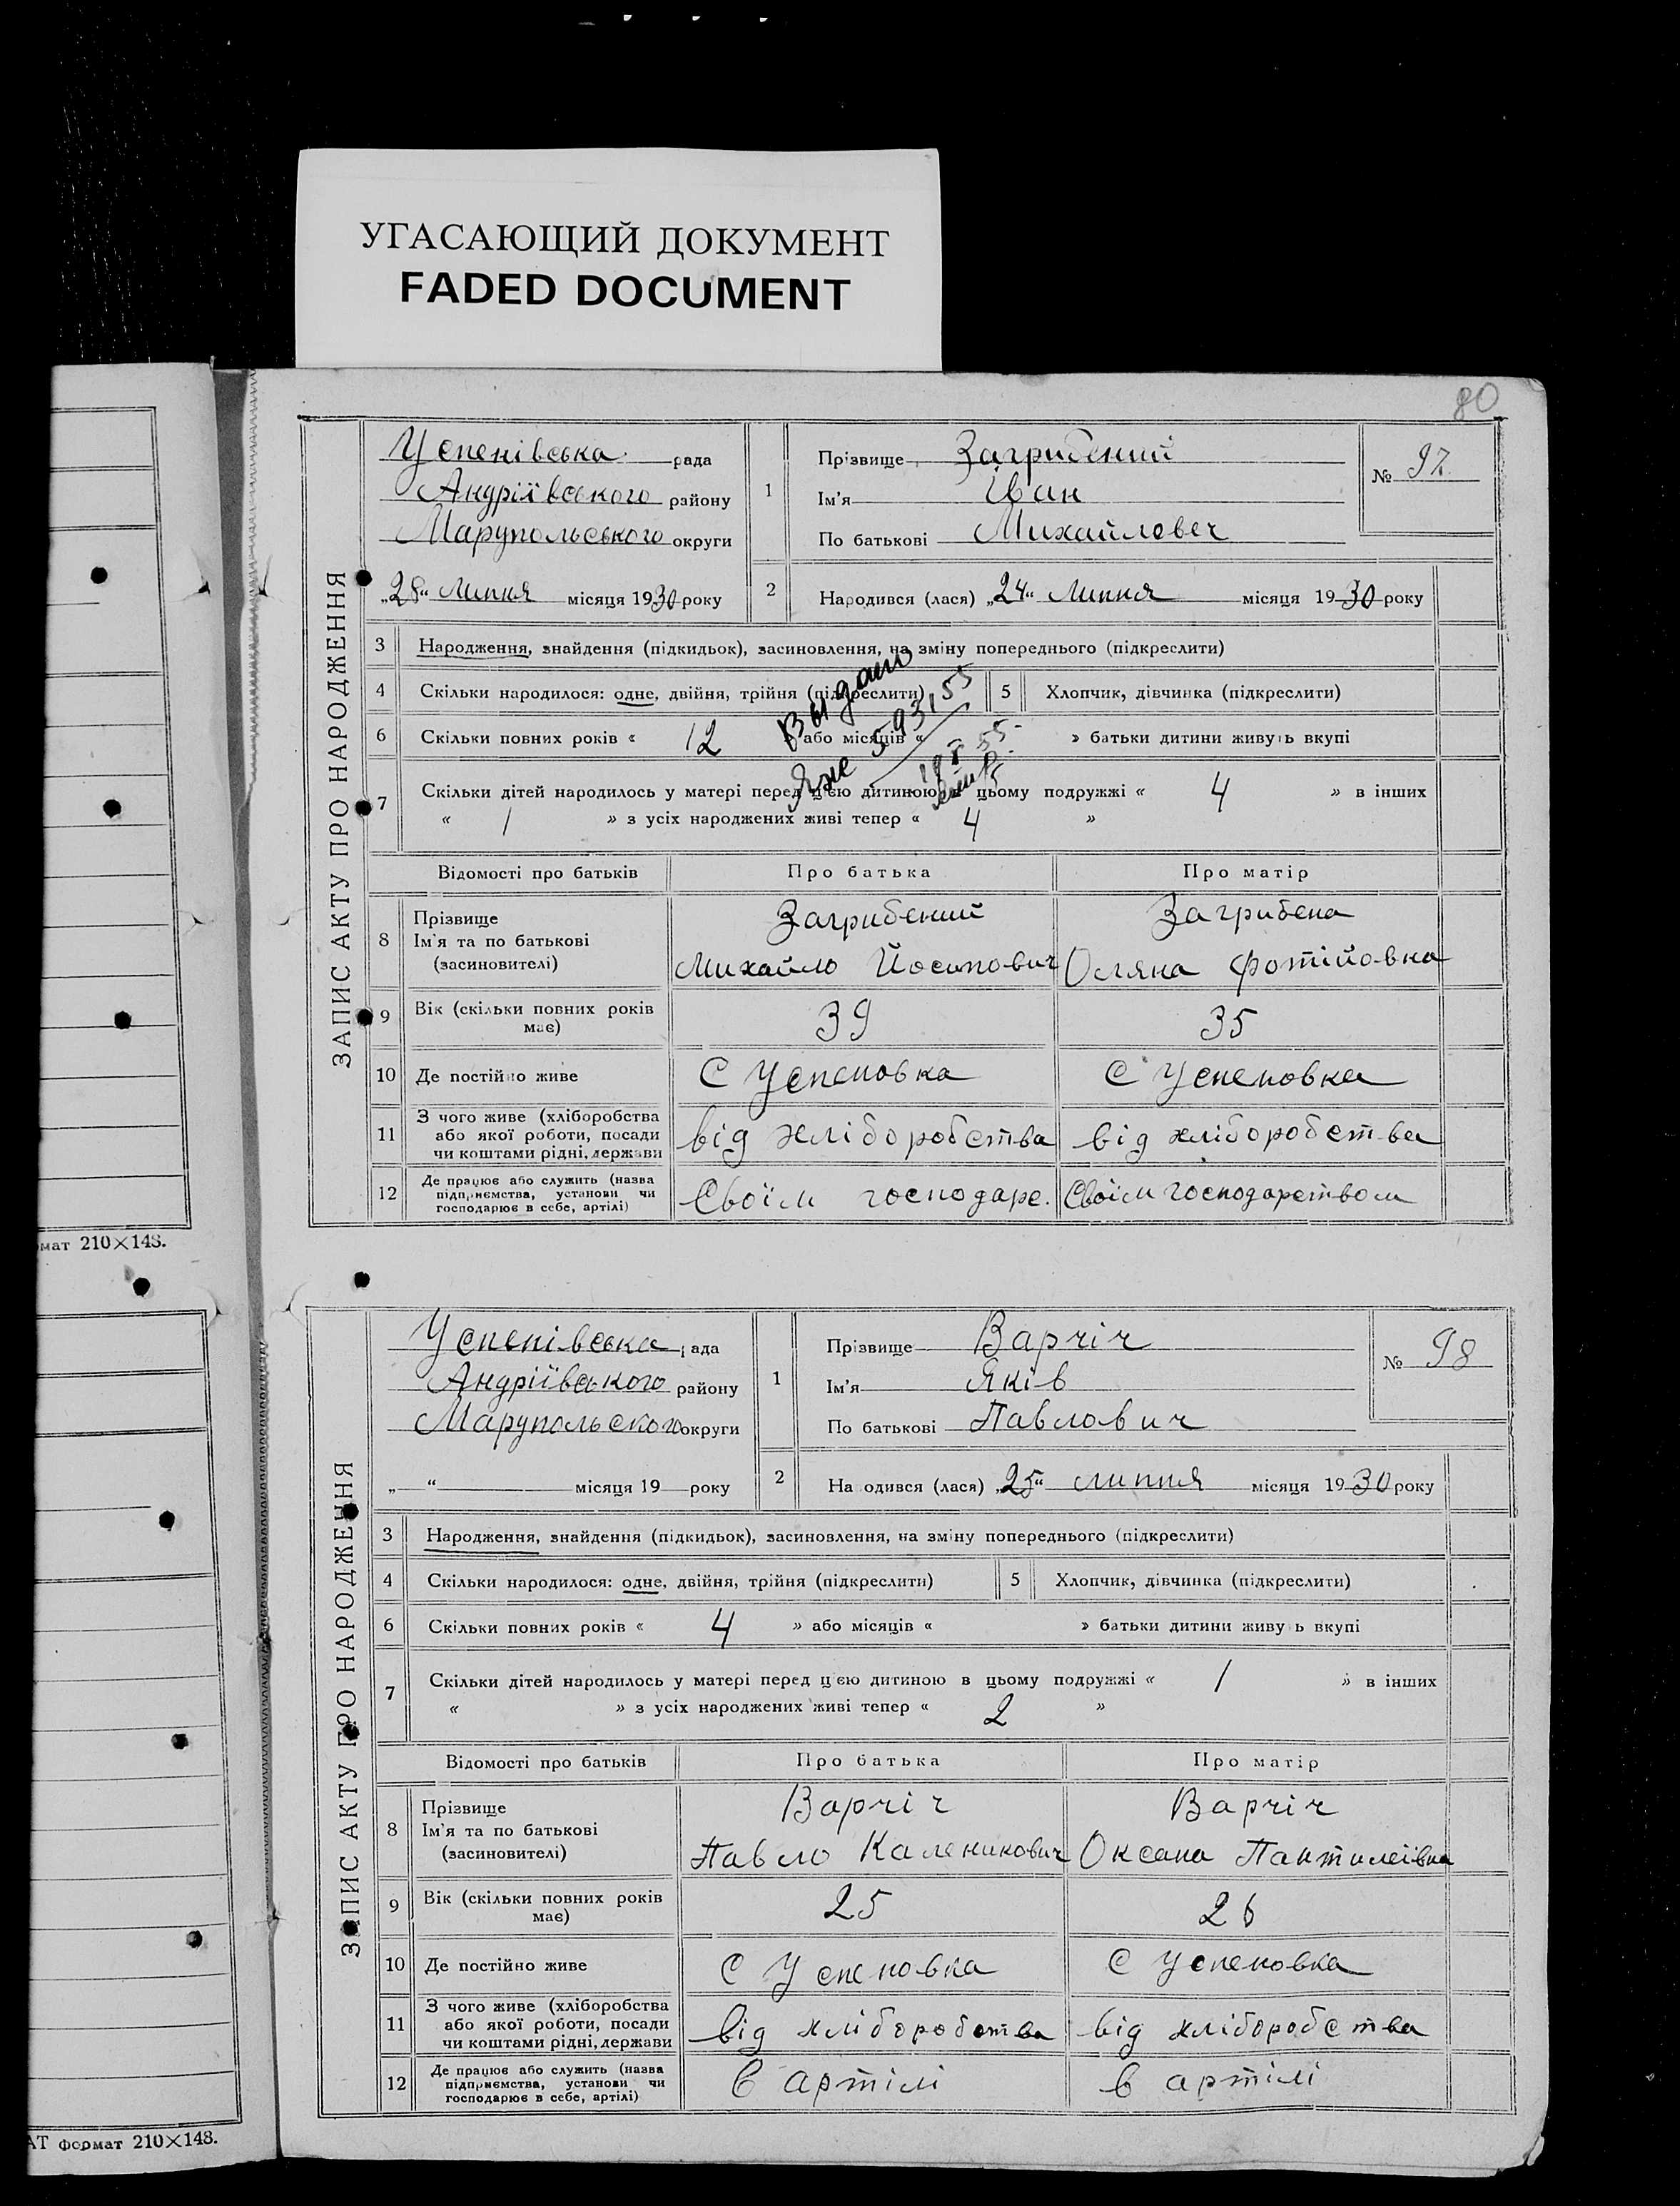 УГАСАЮЩИЙ ДОКУМЕНТ
FADED DOCUMENT
80
ЗАПИС АКТУ ПРО НАРОДЖЕННЯ
Успенівська рада
Андріївського району
Марупольського округи
„28“ Липня місяця 1930 року
1 Прізвище Загрибений
Ім'я Іван
По батькові Михайлович
№ 97
2 Народився (лася) „24“ Липня місяця 1930 року
3 Народження, знайдення (підкидьок), засиновлення, на зміну попереднього (підкреслити)
4 Скільки народилося: одне, двійня, трійня (підкреслити) 5 Хлопчик, дівчинка (підкреслити)
6 Скільки повних років « 12 » або місяців « » батьки дитини живуть вкупі
Выдано
7 Скільки дітей народилось у матері перед цією дитиною в цьому подружжі « 4 » в інших
« 1 » з усіх народжених живі тепер « 4 »
Відомості про батьків Про батька Про матір
8 Прізвище Загрибений Загрибена
Ім'я та по батькові
(засиновителі) Михайло Йосипович Оляна Фотійовна
9 Вік (скільки повних років має) 39 35
10 Де постійно живе С Успеновка С Успеновка
11 З чого живе (хліборобства
або якої роботи, посади
чи коштами рідні, держави від хліборобства від хліборобства
12 Де працює або служить (назва
підприємства, установи чи
господарює в себе, артілі) Своїм господарс. Своїм господарством
мат 210×148.
ЗАПИС АКТУ ПРО НАРОДЖЕННЯ
Успенівська рада
Андріївського району
Марупольского округи
„ “ місяця 19 року
1 Прізвище Варчіч
Ім'я Яків
По батькові Павлович
№ 98
2 На одився (лася) „25“ липня місяця 1930 року
3 Народження, знайдення (підкидьок), засиновлення, на зміну попереднього (підкреслити)
4 Скільки народилося: одне, двійня, трійня (підкреслити) 5 Хлопчик, дівчинка (підкреслити)
6 Скільки повних років « 4 » або місяців « » батьки дитини живу ь вкупі
7 Скільки дітей народилось у матері перед цією дитиною в цьому подружжі « 1 » в інших
« » з усіх народжених живі тепер « 2 »
Відомості про батьків Про батька Про матір
8 Прізвище Варчіч Варчіч
Ім'я та по батькові
(засиновителі) Павло Каленикович Оксана Пантилеївна
9 Вік (скільки повних років має) 25 26
10 Де постійно живе С Успеновка С Успеновка
11 З чого живе (хліборобства
або якої роботи, посади
чи коштами рідні, держави від хліборобства від хліборобства
12 Де працює або служить (назва
підприємства, установи чи
господарює в себе, артілі) в артілі в артілі
АТ формат 210×148.